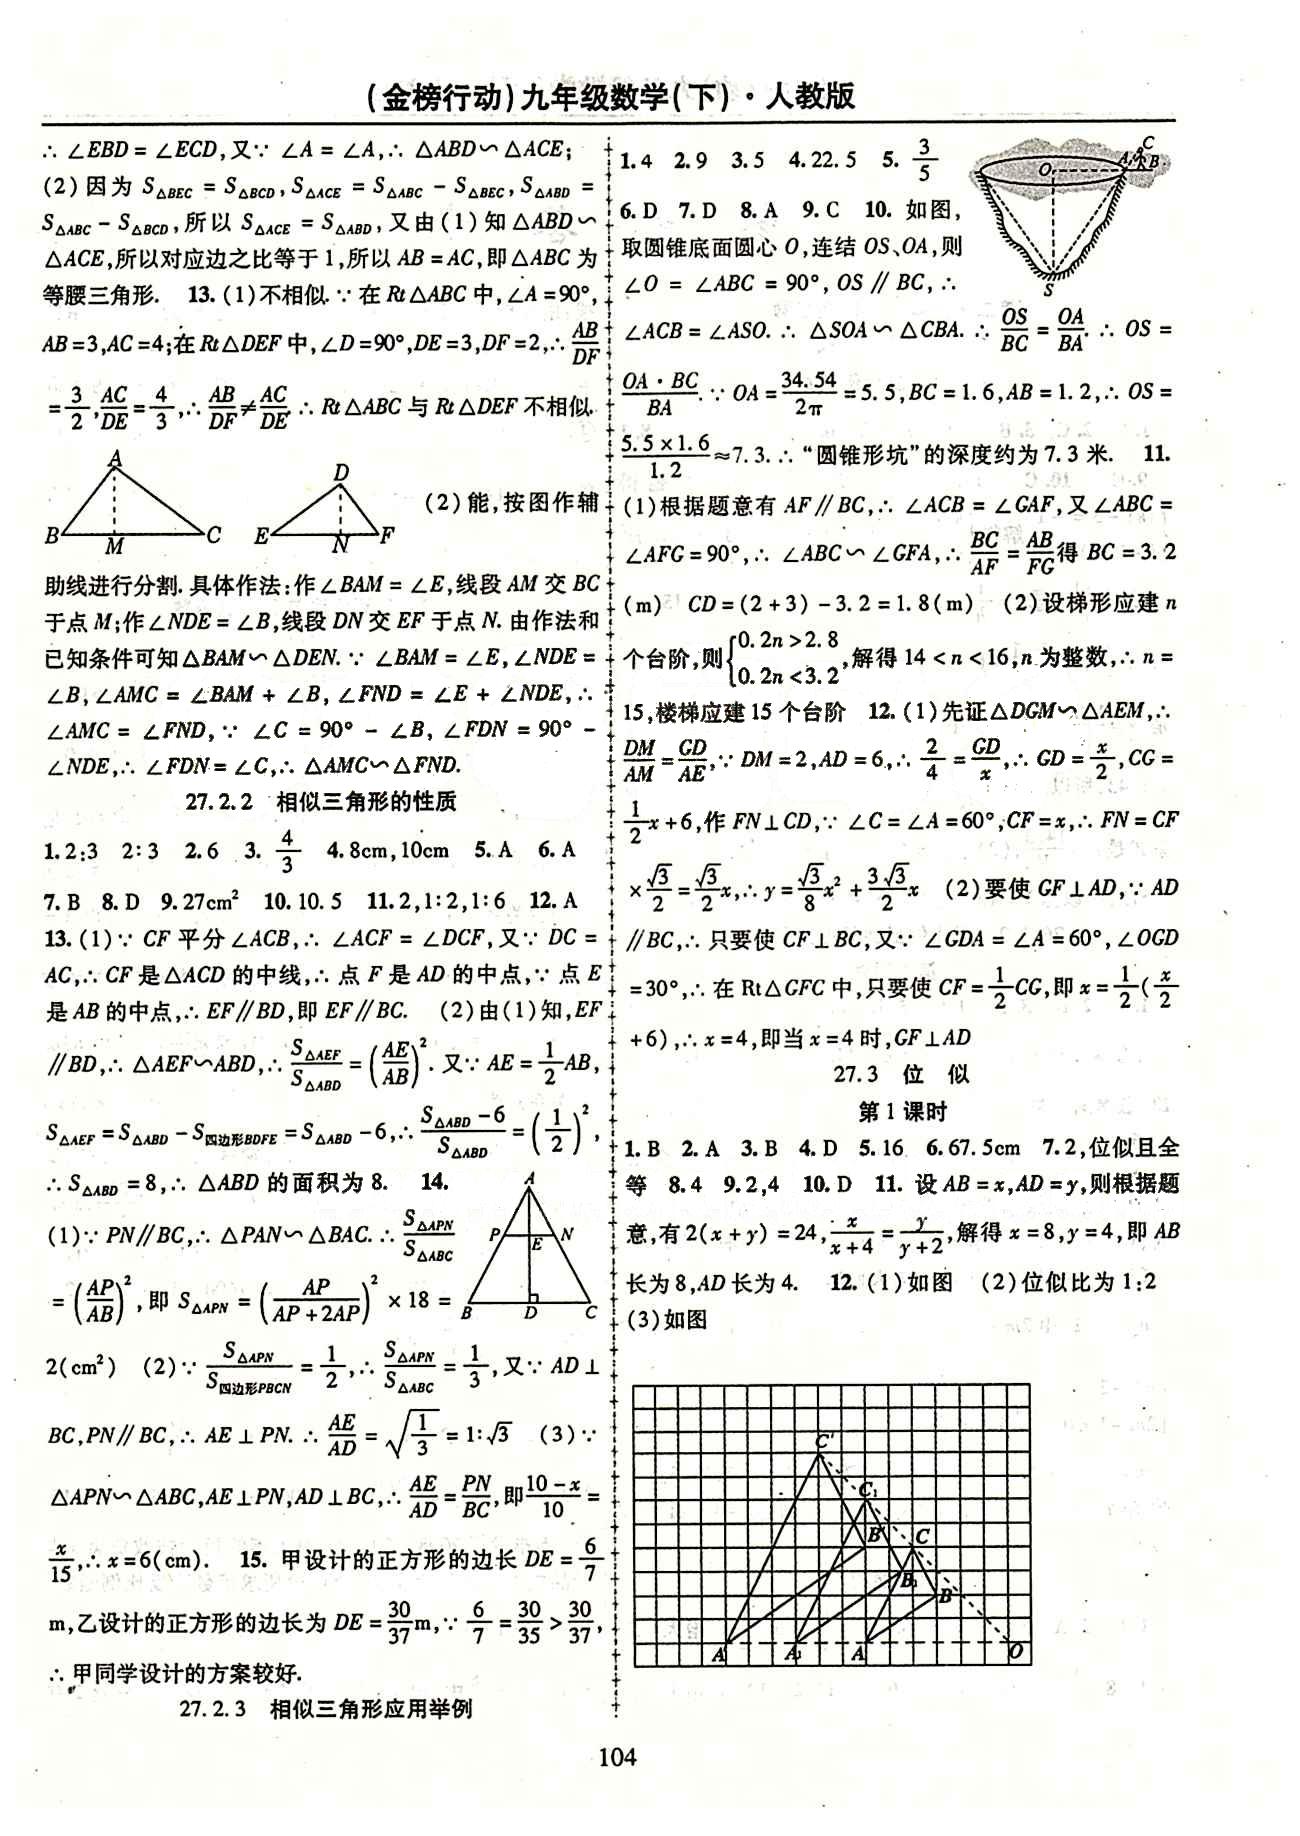 (金榜行动)九年级数学(下)·人教版
∴ ∠EBD = ∠ECD,又∵ ∠A = ∠A,∴ △ABD∽△ACE;
(2)因为 S△BEC = S△BCD,S△ACE = S△ABC − S△BEC,S△ABD =
S△ABC − S△BCD,所以 S△ACE = S△ABD,又由(1)知△ABD∽
△ACE,所以对应边之比等于1,所以 AB = AC,即△ABC 为
等腰三角形. 13.(1)不相似.∵在Rt△ABC中,∠A=90°,
AB=3,AC=4;在Rt△DEF中,∠D=90°,DE=3,DF=2,∴AB/DF
=3/2,AC/DE=4/3,∴AB/DF≠AC/DE.∴Rt△ABC与Rt△DEF不相似.
A
D
(2)能,按图作辅
B M C E N F
助线进行分割.具体作法:作∠BAM=∠E,线段AM交BC
于点M;作∠NDE=∠B,线段DN交EF于点N.由作法和
已知条件可知△BAM∽△DEN.∵∠BAM=∠E,∠NDE=
∠B,∠AMC=∠BAM+∠B,∠FND=∠E+∠NDE,∴
∠AMC=∠FND,∵∠C=90°−∠B,∠FDN=90°−
∠NDE,∴∠FDN=∠C,∴△AMC∽△FND.
27.2.2 相似三角形的性质
1.2:3 2:3 2.6 3. 4/3 4.8cm,10cm 5.A 6.A
7.B 8.D 9.27cm² 10.10.5 11.2,1:2,1:6 12.A
13.(1)∵CF平分∠ACB,∴∠ACF=∠DCF,又∵DC=
AC,∴CF是△ACD的中线,∴点F是AD的中点,∵点E
是AB的中点,∴EF∥BD,即EF∥BC. (2)由(1)知,EF
∥BD,∴△AEF∽ABD,∴S△AEF/S△ABD=(AE/AB)².又∵AE=1/2AB,
S△AEF=S△ABD−S四边形BDFE=S△ABD−6,∴(S△ABD−6)/S△ABD=(1/2)²,
∴S△ABD=8,∴△ABD的面积为8. 14.
(1)∵PN∥BC,∴△PAN∽△BAC.∴S△APN/S△ABC
=(AP/AB)²,即S△APN=(AP/(AP+2AP))²×18=
A
P N
E
B D C
2(cm²) (2)∵S△APN/S四边形PBCN=1/2,∴S△APN/S△ABC=1/3,又∵AD⊥
BC,PN∥BC,∴AE⊥PN.∴AE/AD=√(1/3)=1:√3 (3)∵
△APN∽△ABC,AE⊥PN,AD⊥BC,∴AE/AD=PN/BC,即(10−x)/10=
x/15,∴x=6(cm). 15. 甲设计的正方形的边长DE=6/7
m,乙设计的正方形的边长为DE=30/37m,∵6/7=30/35>30/37,
∴甲同学设计的方案较好.
27.2.3 相似三角形应用举例
1.4 2.9 3.5 4.22.5 5. 3/5
6.D 7.D 8.A 9.C 10. 如图,
取圆锥底面圆心O,连结OS、OA,则
∠O = ∠ABC = 90°,OS∥BC,∴
C
O A B
S
∠ACB=∠ASO.∴△SOA∽△CBA.∴OS/BC=OA/BA.∴OS=
OA·BC/BA.∵OA=34.54/2π=5.5,BC=1.6,AB=1.2,∴OS=
5.5×1.6/1.2≈7.3.∴“圆锥形坑”的深度约为7.3米. 11.
(1)根据题意有AF∥BC,∴∠ACB=∠GAF,又∠ABC=
∠AFG=90°,∴∠ABC∽∠GFA,∴BC/AF=AB/FG得BC=3.2
(m) CD=(2+3)−3.2=1.8(m) (2)设梯形应建n
个台阶,则{0.2n>2.8 0.2n<3.2,解得14<n<16,n为整数,∴n=
15,楼梯应建15个台阶 12.(1)先证△DGM∽△AEM,∴
DM/AM=GD/AE,∵DM=2,AD=6,∴2/4=GD/x,∴GD=x/2,CG=
1/2x+6,作FN⊥CD,∵∠C=∠A=60°,CF=x,∴FN=CF
×√3/2=√3/2x,∴y=√3/8x²+3√3/2x (2)要使GF⊥AD,∵AD
∥BC,∴只要使CF⊥BC,又∵∠GDA=∠A=60°,∠OGD
=30°,∴在Rt△GFC中,只要使CF=1/2CG,即x=1/2(x/2
+6),∴x=4,即当x=4时,GF⊥AD
27.3 位 似
第1课时
1.B 2.A 3.B 4.D 5.16 6.67.5cm 7.2,位似且全
等 8.4 9.2,4 10.D 11. 设AB=x,AD=y,则根据题
意,有2(x+y)=24,x/(x+4)=y/(y+2),解得x=8,y=4,即AB
长为8,AD长为4. 12.(1)如图 (2)位似比为1:2
(3)如图
C′
C₁
B′ C
B₁
B
A′ A₁ A O
104